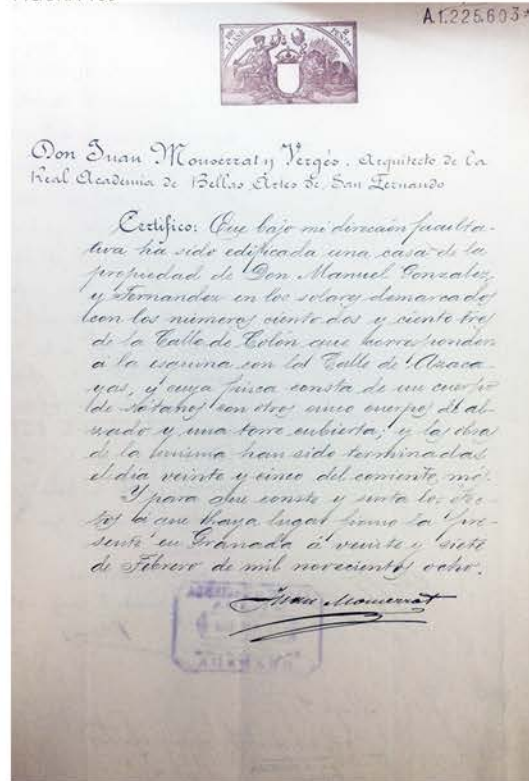 A.1.225.603*
Don Juan Monserrat y Vergés, Arquitecto de la
Real Academia de Bellas Artes de San Fernando
Certifico: Que bajo mi dirección faculta-
tiva ha sido edificada una casa de la
propiedad de Don Manuel Gonzalez
y Fernandez en los solares demarcados
con los números ciento dos y ciento tres
de la Calle de Colón que corresponden
á la esquina con la Calle de Azaca-
yas, y cuya finca consta de un cuerpo
de sótanos con otros cinco cuerpos de al-
zado y una torre cubierta; y las obras
de la misma han sido terminadas
el día veinte y cinco del corriente mes.
Y para que conste y surta los efec-
tos á que haya lugar firmo la pre-
sente en Granada á veinte y siete
de Febrero de mil novecientos ocho.
Juan Monserrat